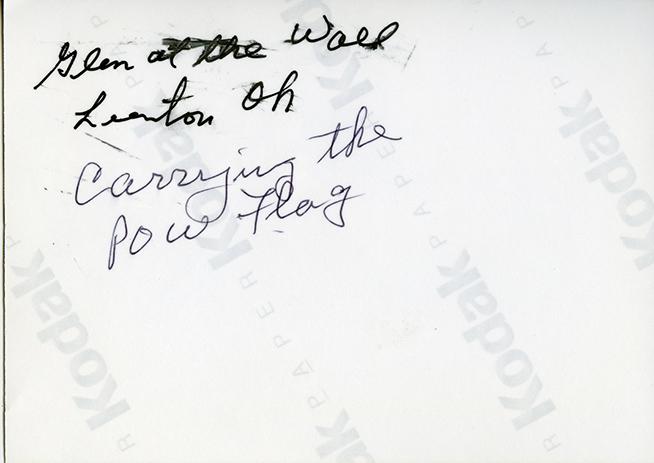 Glen at the Wall
Oh
Carrying the
POW Flag
Kodak PAPER
Kodak PAPER
Kodak PAPER
Kodak
Kodak